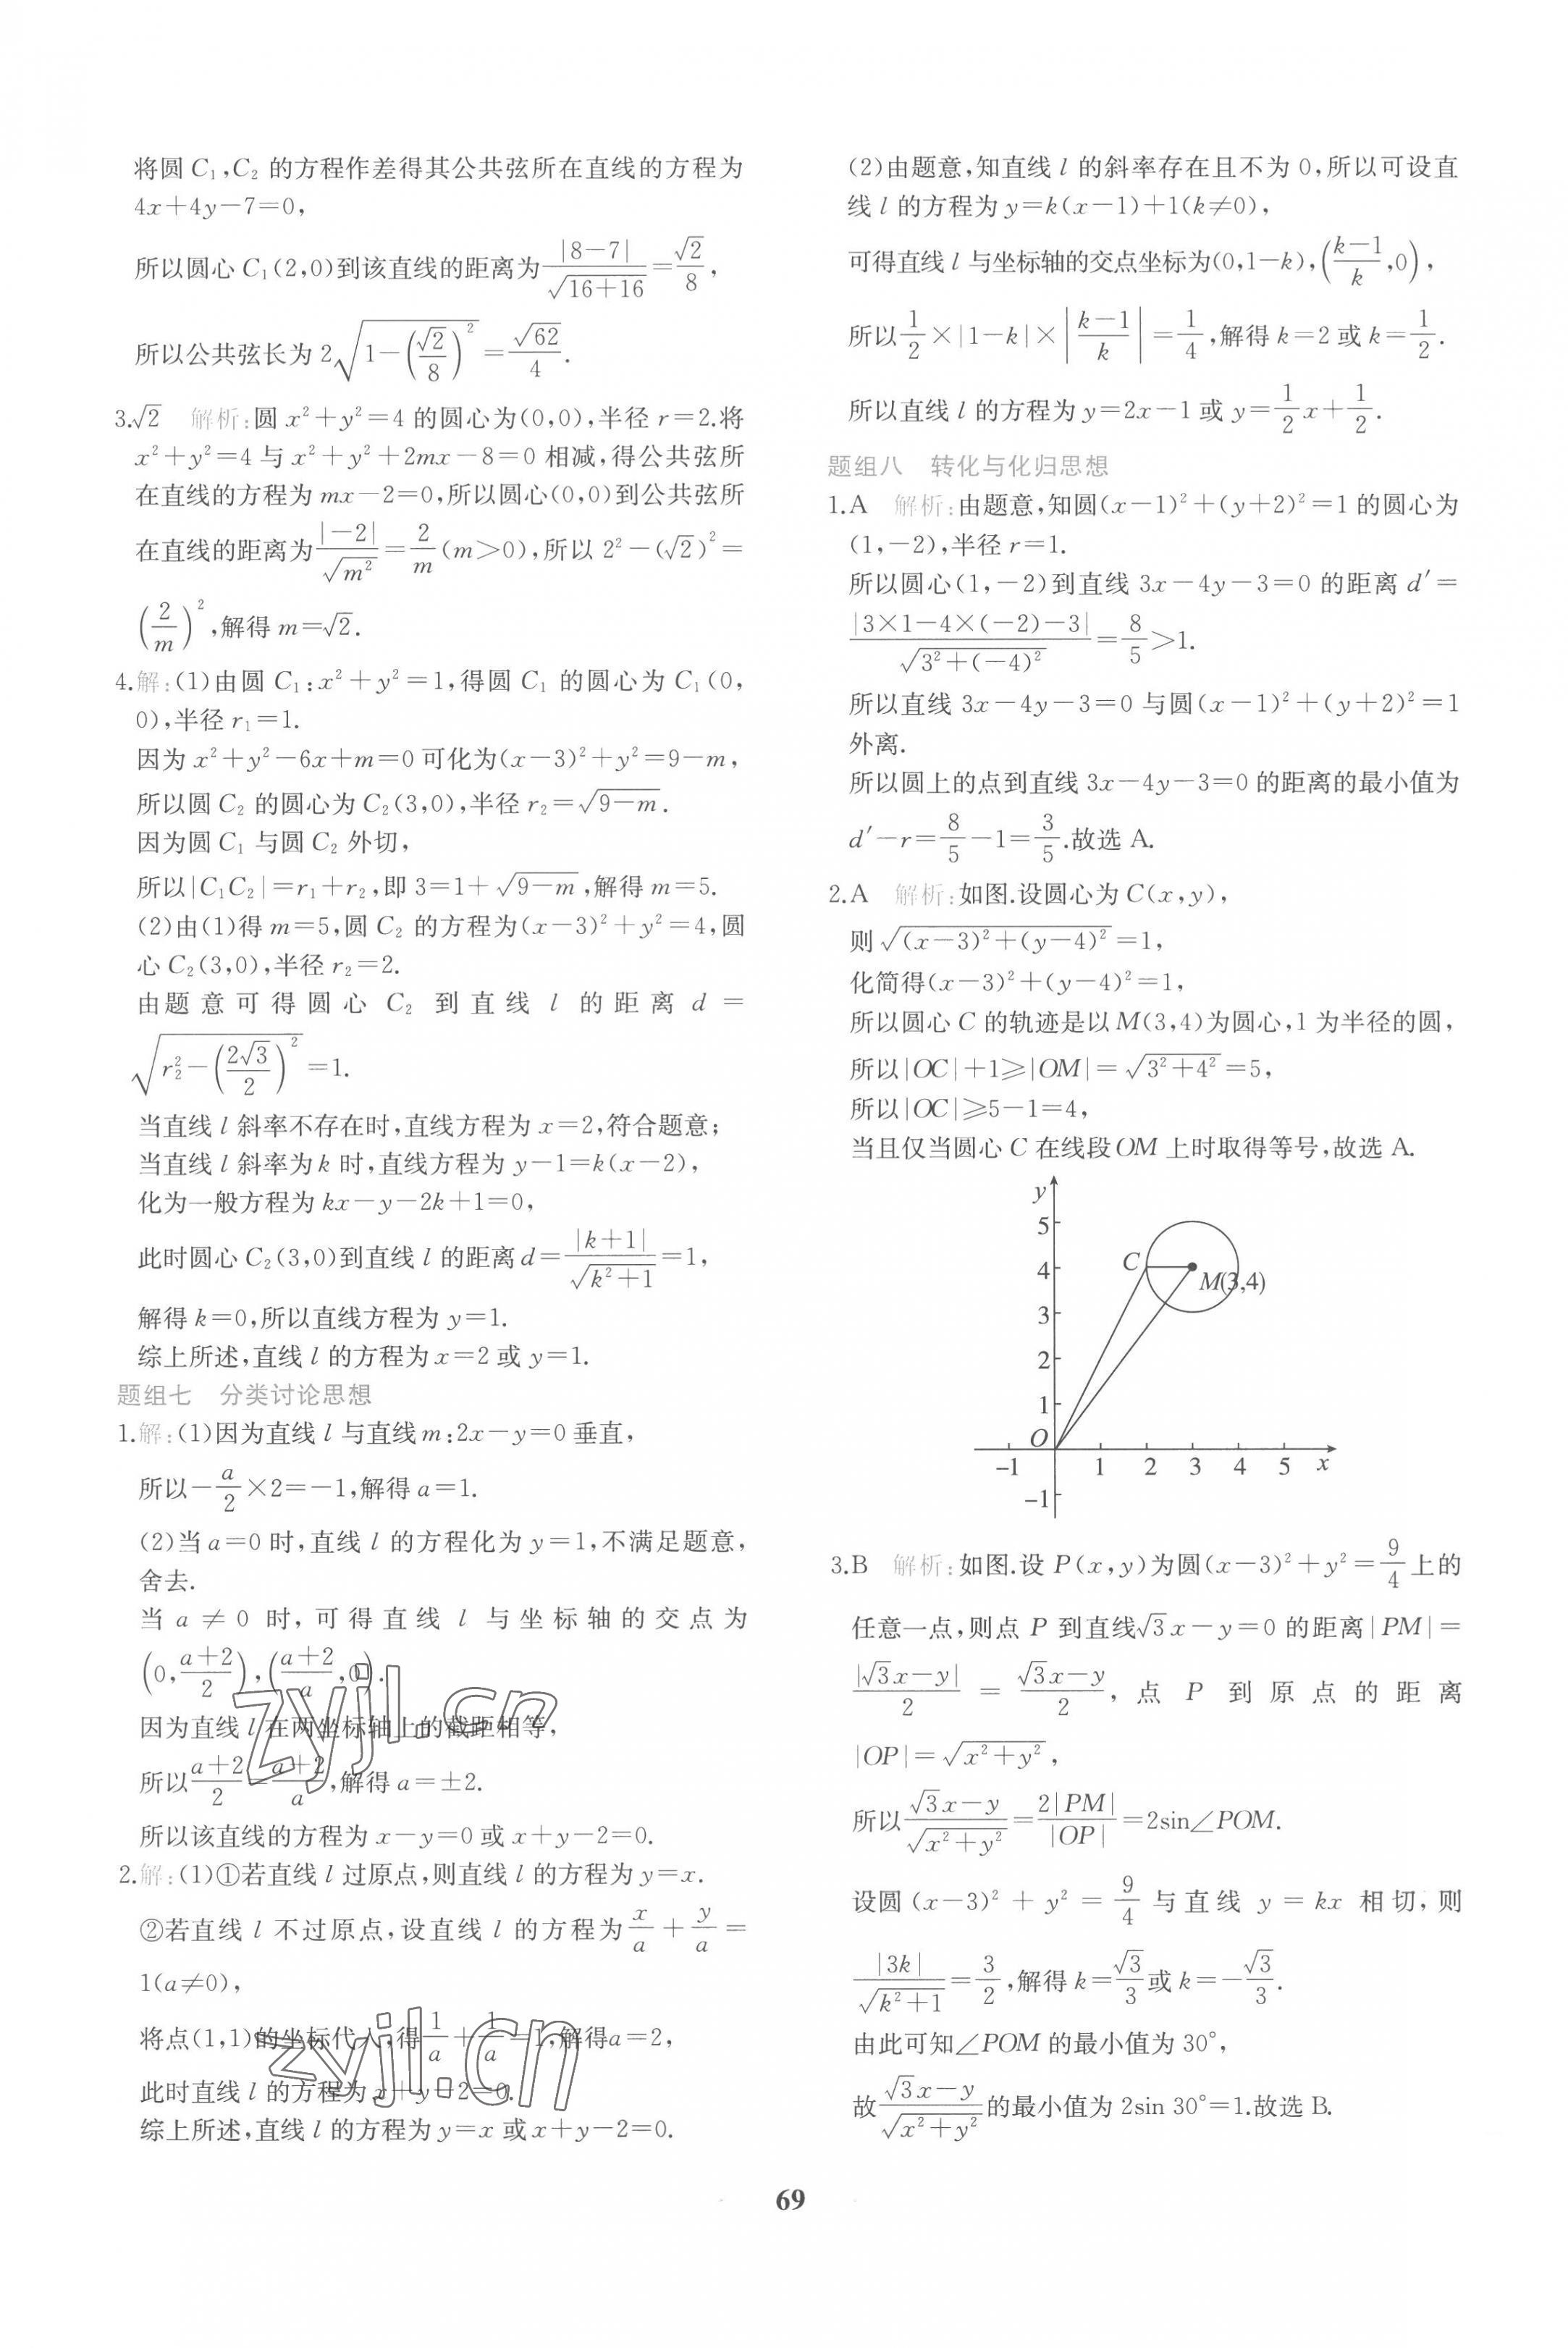 将圆 C₁,C₂ 的方程作差得其公共弦所在直线的方程为
4x+4y-7=0,
所以圆心 C₁(2,0)到该直线的距离为|8-7|/√(16+16)=√2/8,
所以公共弦长为 2√(1-(√2/8)²)=√62/4.
3.√2 解析:圆 x²+y²=4 的圆心为(0,0),半径 r=2.将
x²+y²=4 与 x²+y²+2mx-8=0 相减,得公共弦所
在直线的方程为 mx-2=0,所以圆心(0,0)到公共弦所
在直线的距离为|-2|/√(m²)=2/m(m>0),所以 2²-(√2)²=
(2/m)²,解得 m=√2.
4.解:(1)由圆 C₁:x²+y²=1,得圆 C₁ 的圆心为 C₁(0,
0),半径 r₁=1.
因为 x²+y²-6x+m=0 可化为(x-3)²+y²=9-m,
所以圆 C₂ 的圆心为 C₂(3,0),半径 r₂=√(9-m).
因为圆 C₁ 与圆 C₂ 外切,
所以|C₁C₂|=r₁+r₂,即 3=1+√(9-m),解得 m=5.
(2)由(1)得 m=5,圆 C₂ 的方程为(x-3)²+y²=4,圆
心 C₂(3,0),半径 r₂=2.
由题意可得圆心 C₂ 到直线 l 的距离 d=
√(r₂²-(2√3/2)²)=1.
当直线 l 斜率不存在时,直线方程为 x=2,符合题意;
当直线 l 斜率为 k 时,直线方程为 y-1=k(x-2),
化为一般方程为 kx-y-2k+1=0,
此时圆心 C₂(3,0)到直线 l 的距离 d=|k+1|/√(k²+1)=1,
解得 k=0,所以直线方程为 y=1.
综上所述,直线 l 的方程为 x=2 或 y=1.
题组七 分类讨论思想
1.解:(1)因为直线 l 与直线 m:2x-y=0 垂直,
所以-a/2×2=-1,解得 a=1.
(2)当 a=0 时,直线 l 的方程化为 y=1,不满足题意,
舍去.
当 a≠0 时,可得直线 l 与坐标轴的交点为
(0,(a+2)/2),((a+2)/a,0).
因为直线 l 在两坐标轴上的截距相等,
所以(a+2)/2=(a+2)/a,解得 a=±2.
所以该直线的方程为 x-y=0 或 x+y-2=0.
2.解:(1)①若直线 l 过原点,则直线 l 的方程为 y=x.
②若直线 l 不过原点,设直线 l 的方程为x/a+y/a=
1(a≠0),
将点(1,1)的坐标代入,得1/a+1/a=1,解得a=2,
此时直线 l 的方程为 x+y-2=0.
综上所述,直线 l 的方程为 y=x 或 x+y-2=0.
(2)由题意,知直线 l 的斜率存在且不为 0,所以可设直
线 l 的方程为 y=k(x-1)+1(k≠0),
可得直线 l 与坐标轴的交点坐标为(0,1-k),((k-1)/k,0),
所以1/2×|1-k|×|(k-1)/k|=1/4,解得 k=2 或 k=1/2.
所以直线 l 的方程为 y=2x-1 或 y=1/2x+1/2.
题组八 转化与化归思想
1.A 解析:由题意,知圆(x-1)²+(y+2)²=1 的圆心为
(1,-2),半径 r=1.
所以圆心(1,-2)到直线 3x-4y-3=0 的距离 d′=
|3×1-4×(-2)-3|/√(3²+(-4)²)=8/5>1.
所以直线 3x-4y-3=0 与圆(x-1)²+(y+2)²=1
外离.
所以圆上的点到直线 3x-4y-3=0 的距离的最小值为
d′-r=8/5-1=3/5.故选 A.
2.A 解析:如图.设圆心为 C(x,y),
则√((x-3)²+(y-4)²)=1,
化简得(x-3)²+(y-4)²=1,
所以圆心 C 的轨迹是以 M(3,4)为圆心,1 为半径的圆,
所以|OC|+1⩾|OM|=√(3²+4²)=5,
所以|OC|⩾5-1=4,
当且仅当圆心 C 在线段 OM 上时取得等号,故选 A.
y
5
4
C
M(3,4)
3
2
1
O
-1 1 2 3 4 5 x
-1
3.B 解析:如图.设 P(x,y)为圆(x-3)²+y²=9/4上的
任意一点,则点 P 到直线√3x-y=0 的距离|PM|=
|√3x-y|/2=(√3x-y)/2,点 P 到原点的距离
|OP|=√(x²+y²),
所以(√3x-y)/√(x²+y²)=2|PM|/|OP|=2sin∠POM.
设圆(x-3)²+y²=9/4与直线 y=kx 相切,则
|3k|/√(k²+1)=3/2,解得 k=√3/3或 k=-√3/3.
由此可知∠POM 的最小值为 30°,
故(√3x-y)/√(x²+y²)的最小值为 2sin 30°=1.故选 B.
69
zyjl.cn
zyjl.cn